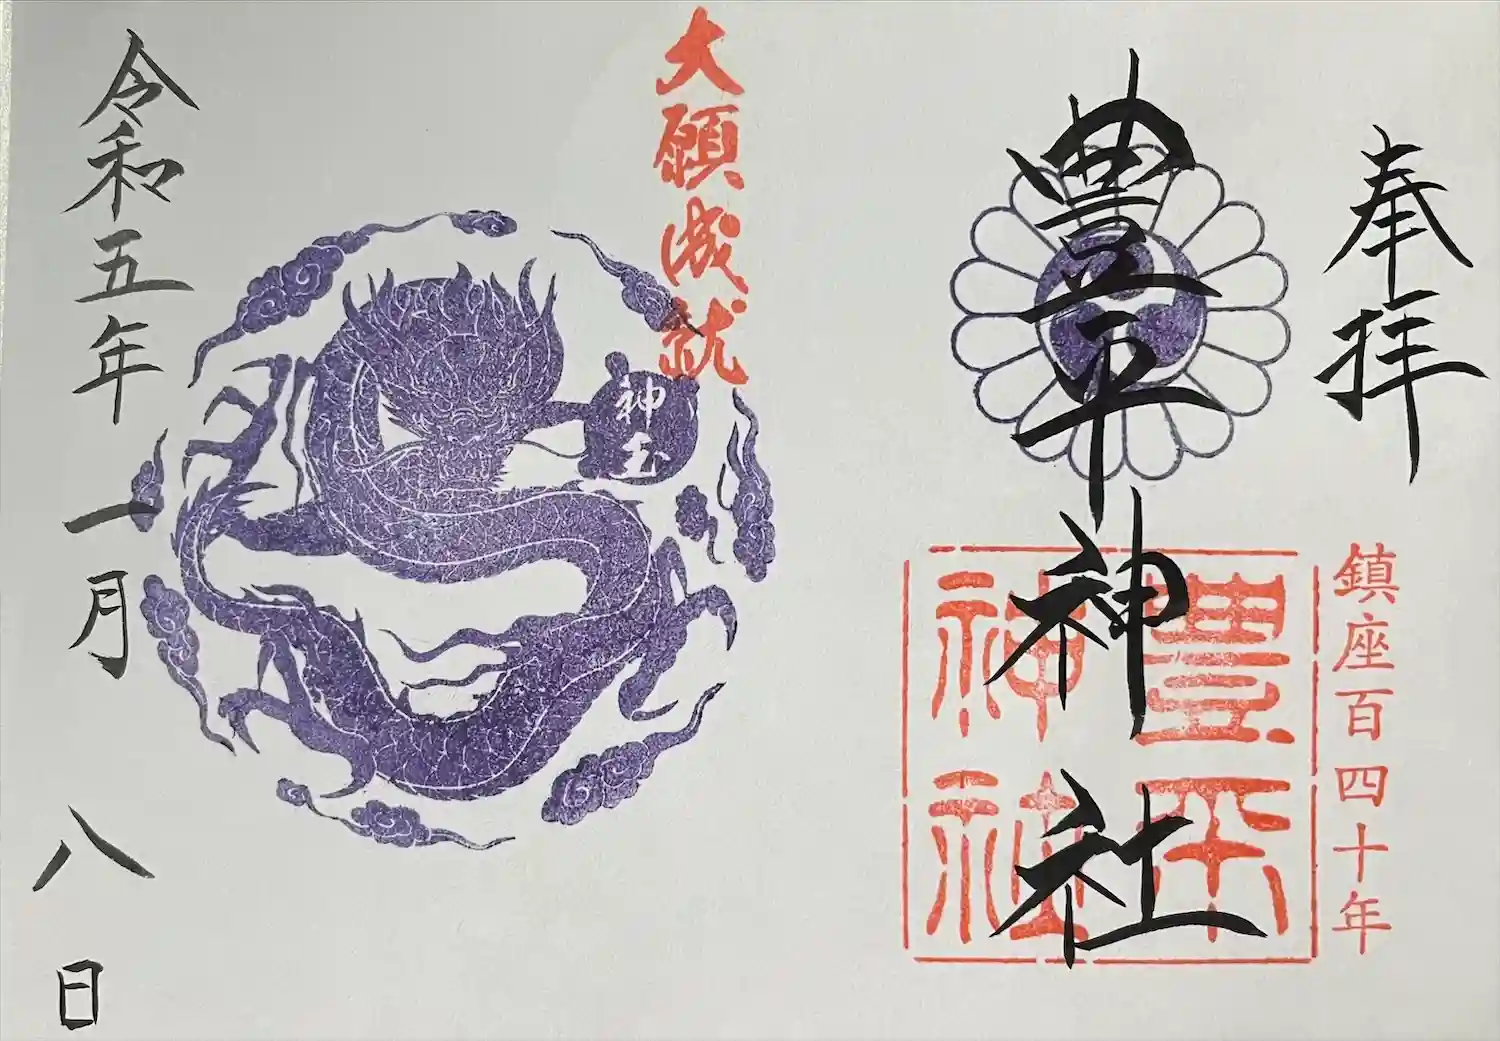 奉拝
鎮座百四十年
豊平神社
豊平
神社
大願成就
神玉
令和五年一月八日